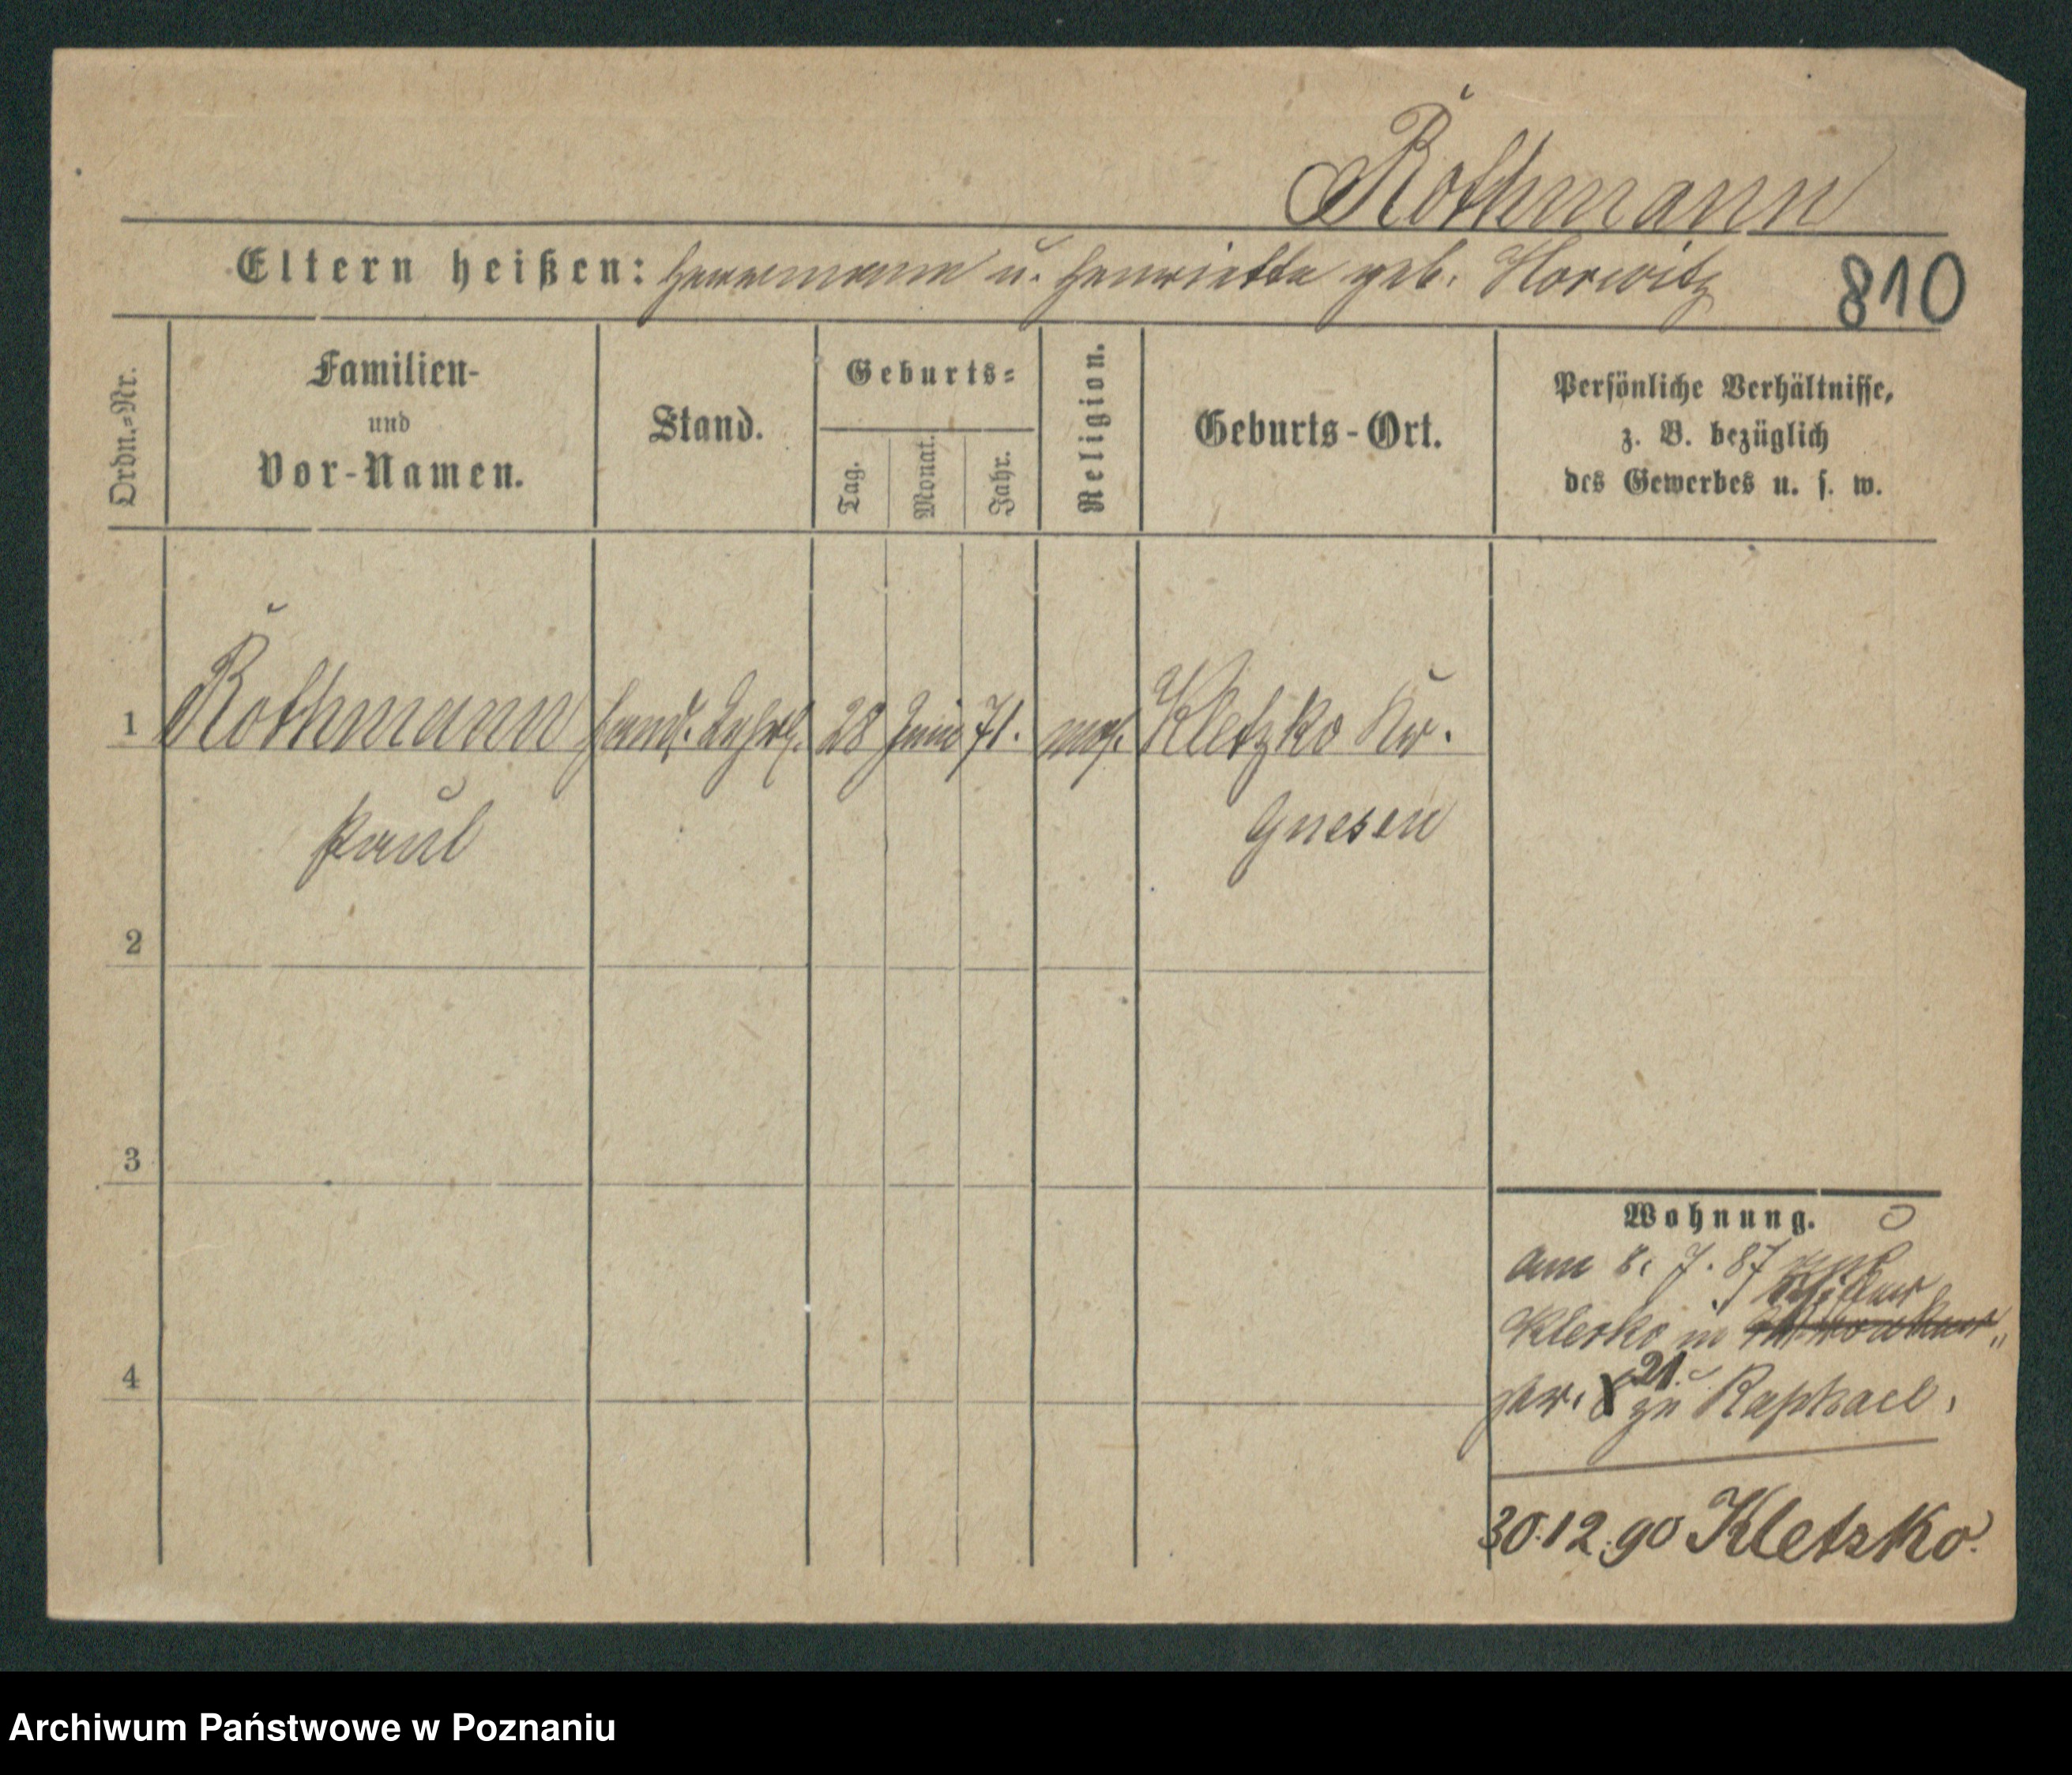 Rothmann
Eltern heißen: Herrmann u. Henriette geb. Horwitz
810
Ordn.=Nr.
Familien-
und
Vor-Namen.
Stand.
Geburts=
Tag.
Monat.
Jahr.
Religion.
Geburts-Ort.
Persönliche Verhältnisse,
z. B. bezüglich
des Gewerbes u. s. w.
1 Rothmann Hand. Lehrl. 28 Juni 71. mos. Kletzko Kr.
Paul Gnesen
2
3
4
Wohnung.
am 8. 7. 87
Kletzko in
21.
zu Raphael.
30.12.90 Kletzko.
Archiwum Państwowe w Poznaniu